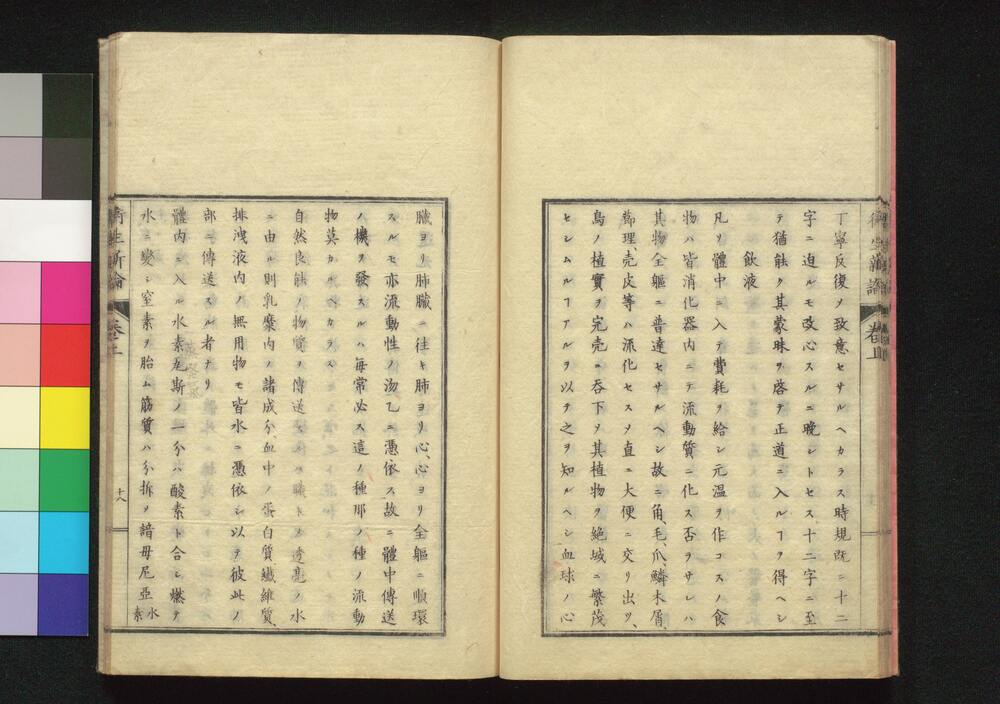 衛生新論
卷上
丁寧反復乄致意セサルヘカラス時規既ニ十二
字ニ迫ルモ改心スルニ晩シトセス十二字ニ至
テ猶能ク其蒙昧ヲ啓テ正道ニ入ルヿヲ得ヘシ
飲液
凡ソ體中ニ入テ費耗ヲ給シ元温ヲ作コスノ食
物ハ皆消化器内ニテ流動質ニ化ス否ラサレハ
其物全軀ニ普達セサルヘシ故ニ角、毛、爪、鱗木屑、
節理、売皮等ハ流化セス乄直ニ大便ニ交リ出ツ、
鳥ノ植實ヲ完売ニ呑下乄其植物ヲ絶域ニ繁茂
セシムルヿアルヲ以テ之ヲ知ルヘシ血球ノ心
臟ヨリ肺臟ニ往キ肺ヨリ心、心ヨリ全軀ニ順環
スルモ亦流動性ノ汤乙ニ憑依ス故ニ體中傳送
ノ機ヲ發スルハ毎常必ス這ノ種那ノ種ノ流動
物莫カルヘカラス
自然良能ノ物質ヲ傳送スルハ職トメ透亮ノ水
ニ由ル則乳糜内ノ諸成分、血中ノ蛋白質、纎維質、
排洩液内ノ無用物モ皆水ニ憑依シ以テ彼此ノ
部ニ傳送スル者ナリ
體内ニ入ル水素瓦斯ノ一分ハ酸素ト合シ燃テ
水ニ變シ窒素ヲ胎ム筋質ハ分拆乄諳母尼亞水素
衛生新論
卷上
十八